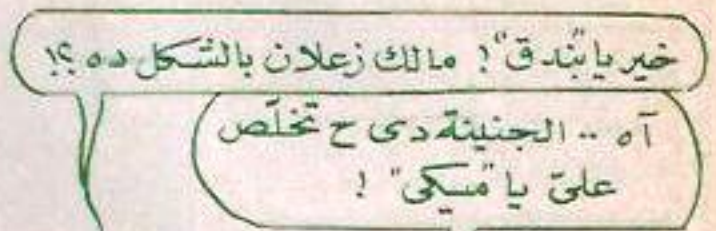 خير يا "بندق"! مالك زعلان بالشكل ده ؟!
آه .. الجنينة دى ح تخلّص
علىّ يا "ميكى" !